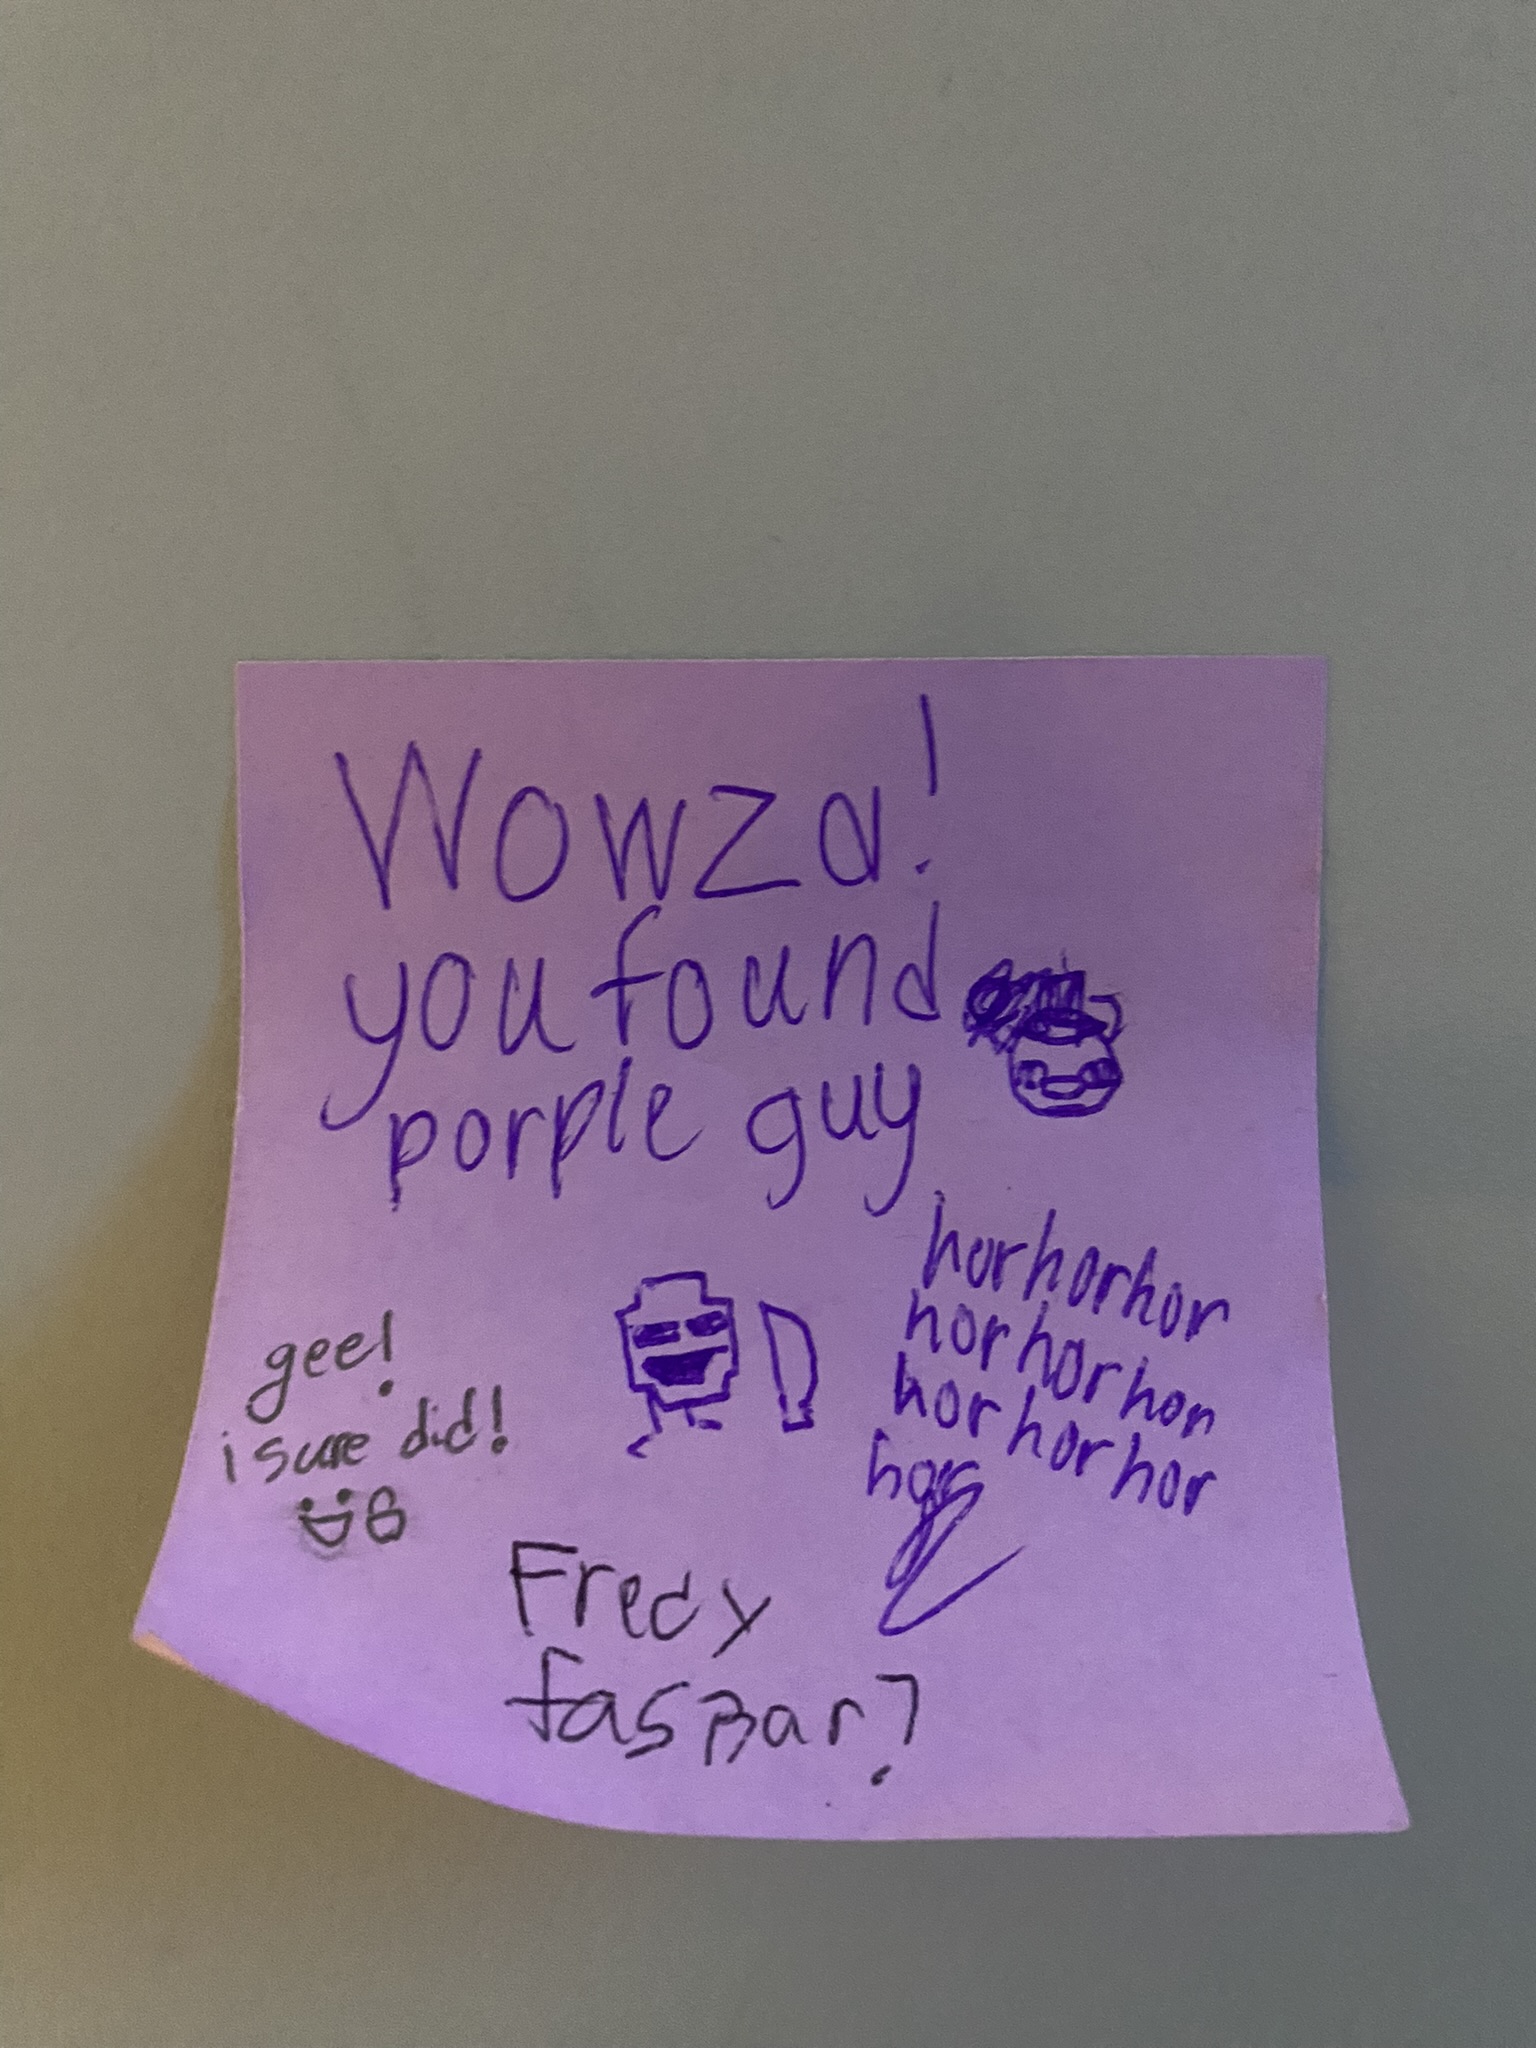 Wowza!
you found
porple guy
horhorhor
horhorhor
horhorhor
hor
gee!
i sure did!
Fredy
fasBar?